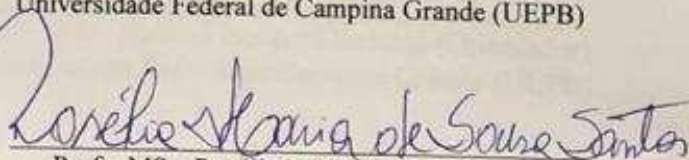 Universidade Federal de Campina Grande (UEPB)
Rosélia Maria de Sousa Santos